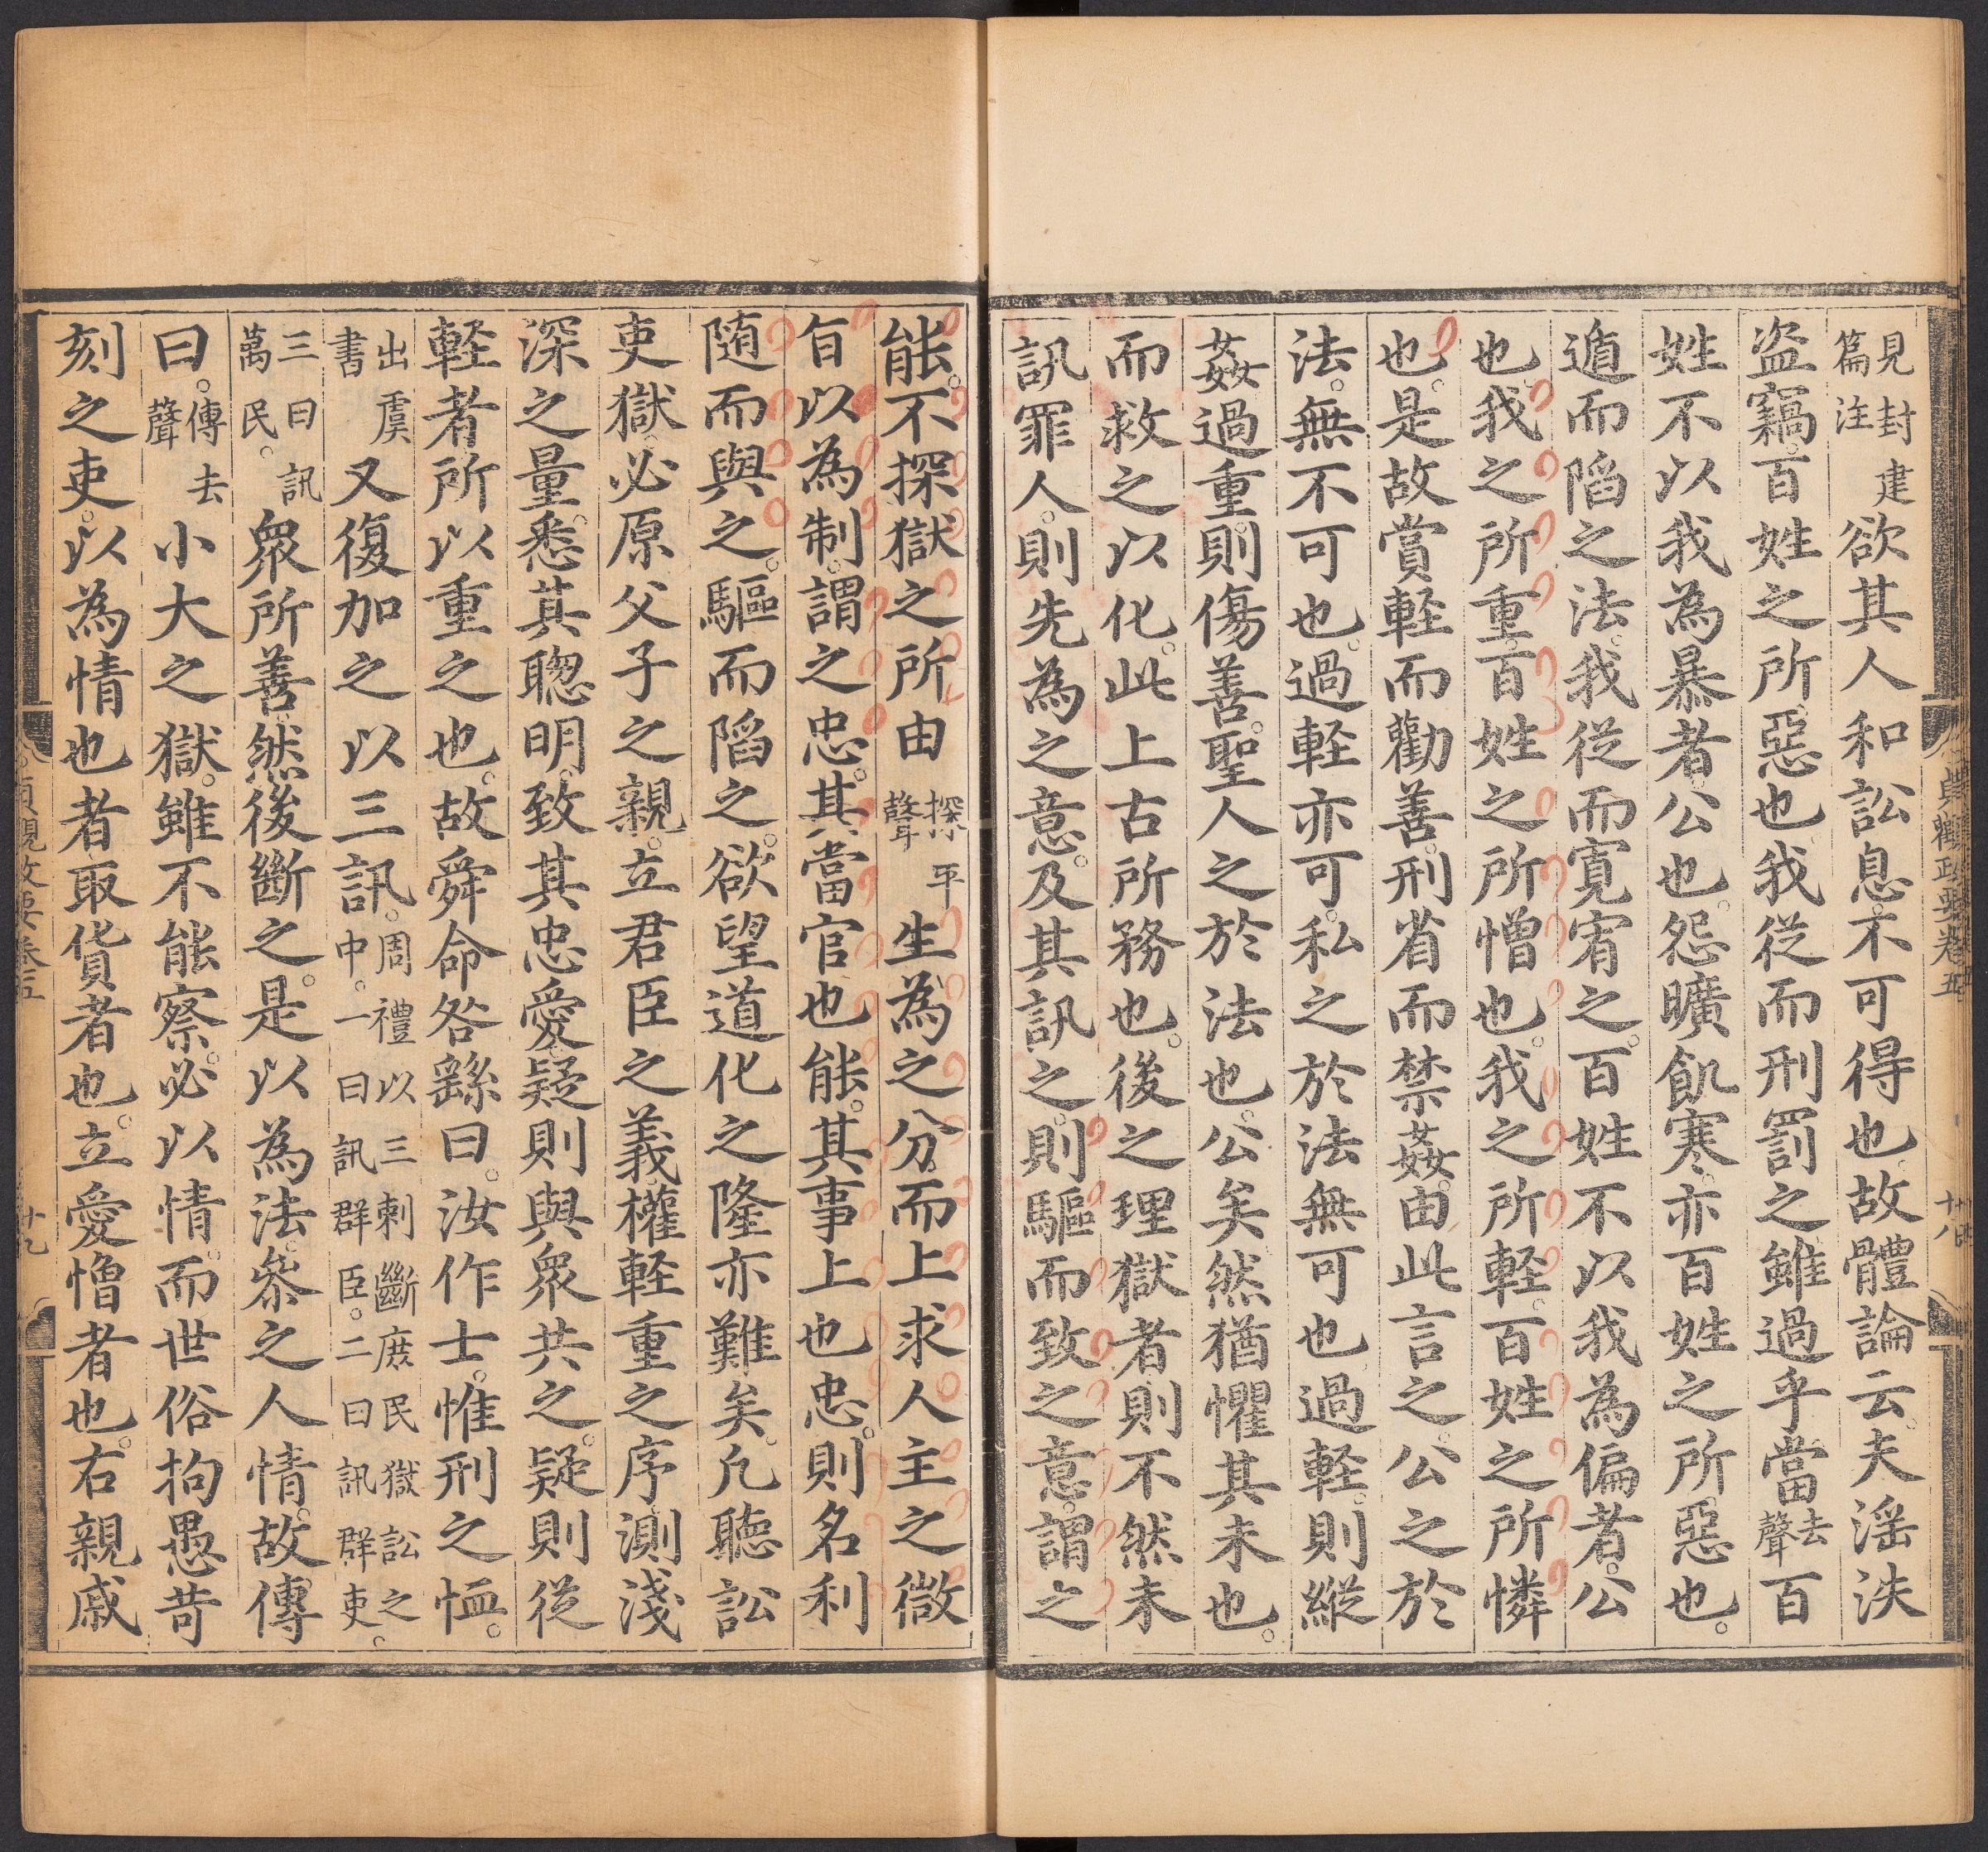 見封建
篇注
欲其人和訟息不可得也故體論云夫滛泆
盗竊百姓之所惡也我從而刑罰之雖過乎當
去
聲
百
姓不以我為暴者公也怨曠飢寒亦百姓之所惡也
遁而陷之法我從而寬宥之百姓不以我為偏者公
也我之所重百姓之所憎也我之所輕百姓之所憐
也是故賞輕而勸善刑省而禁姦由此言之公之於
法無不可也過輕亦可私之於法無可也過輕則縱
姦過重則傷善聖人之於法也公矣然猶懼其未也
而救之以化此上古所務也後之理獄者則不然未
訊罪人則先為之意及其訊之則驅而致之意謂之
能不探獄之所由
探平
聲
生為之分而上求人主之微
旨以為制謂之忠其當官也能其事上也忠則名利
随而與之驅而陷之欲望道化之隆亦難矣凡聽訟
吏獄必原父子之親立君臣之義權輕重之序測淺
深之量悉其聰明致其忠愛疑則與衆共之疑則從
輕者所以重之也故舜命咎繇曰汝作士惟刑之恤
出虞
書
又復加之以三訊
周禮以三刺斷庶民獄訟之
中一曰訊群臣二曰訊群吏
三曰訊
萬民
衆所善然後斷之是以為法叅之人情故傳
曰
傳去
聲
小大之獄雖不能察必以情而世俗拘愚苛
刻之吏以為情也者取貨者也立愛憎者也右親戚